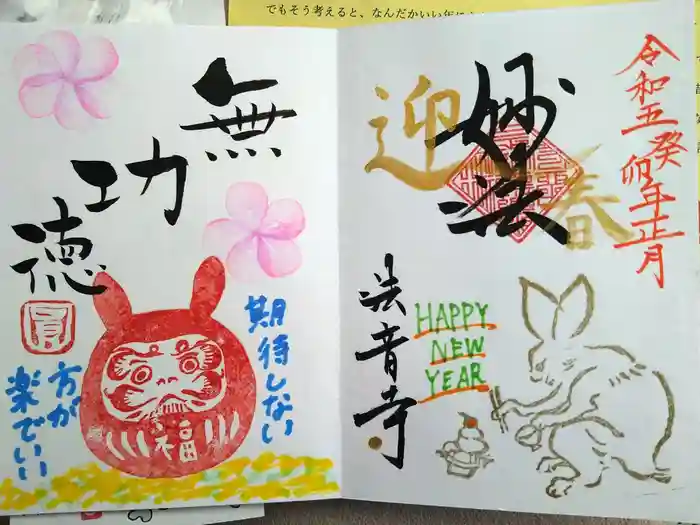 でもそう考えると、なんだかいい年に
令和五癸卯年正月
迎春
妙法
法音寺
HAPPY
NEW
YEAR
無功徳
期待しない
方が
楽でいい
福